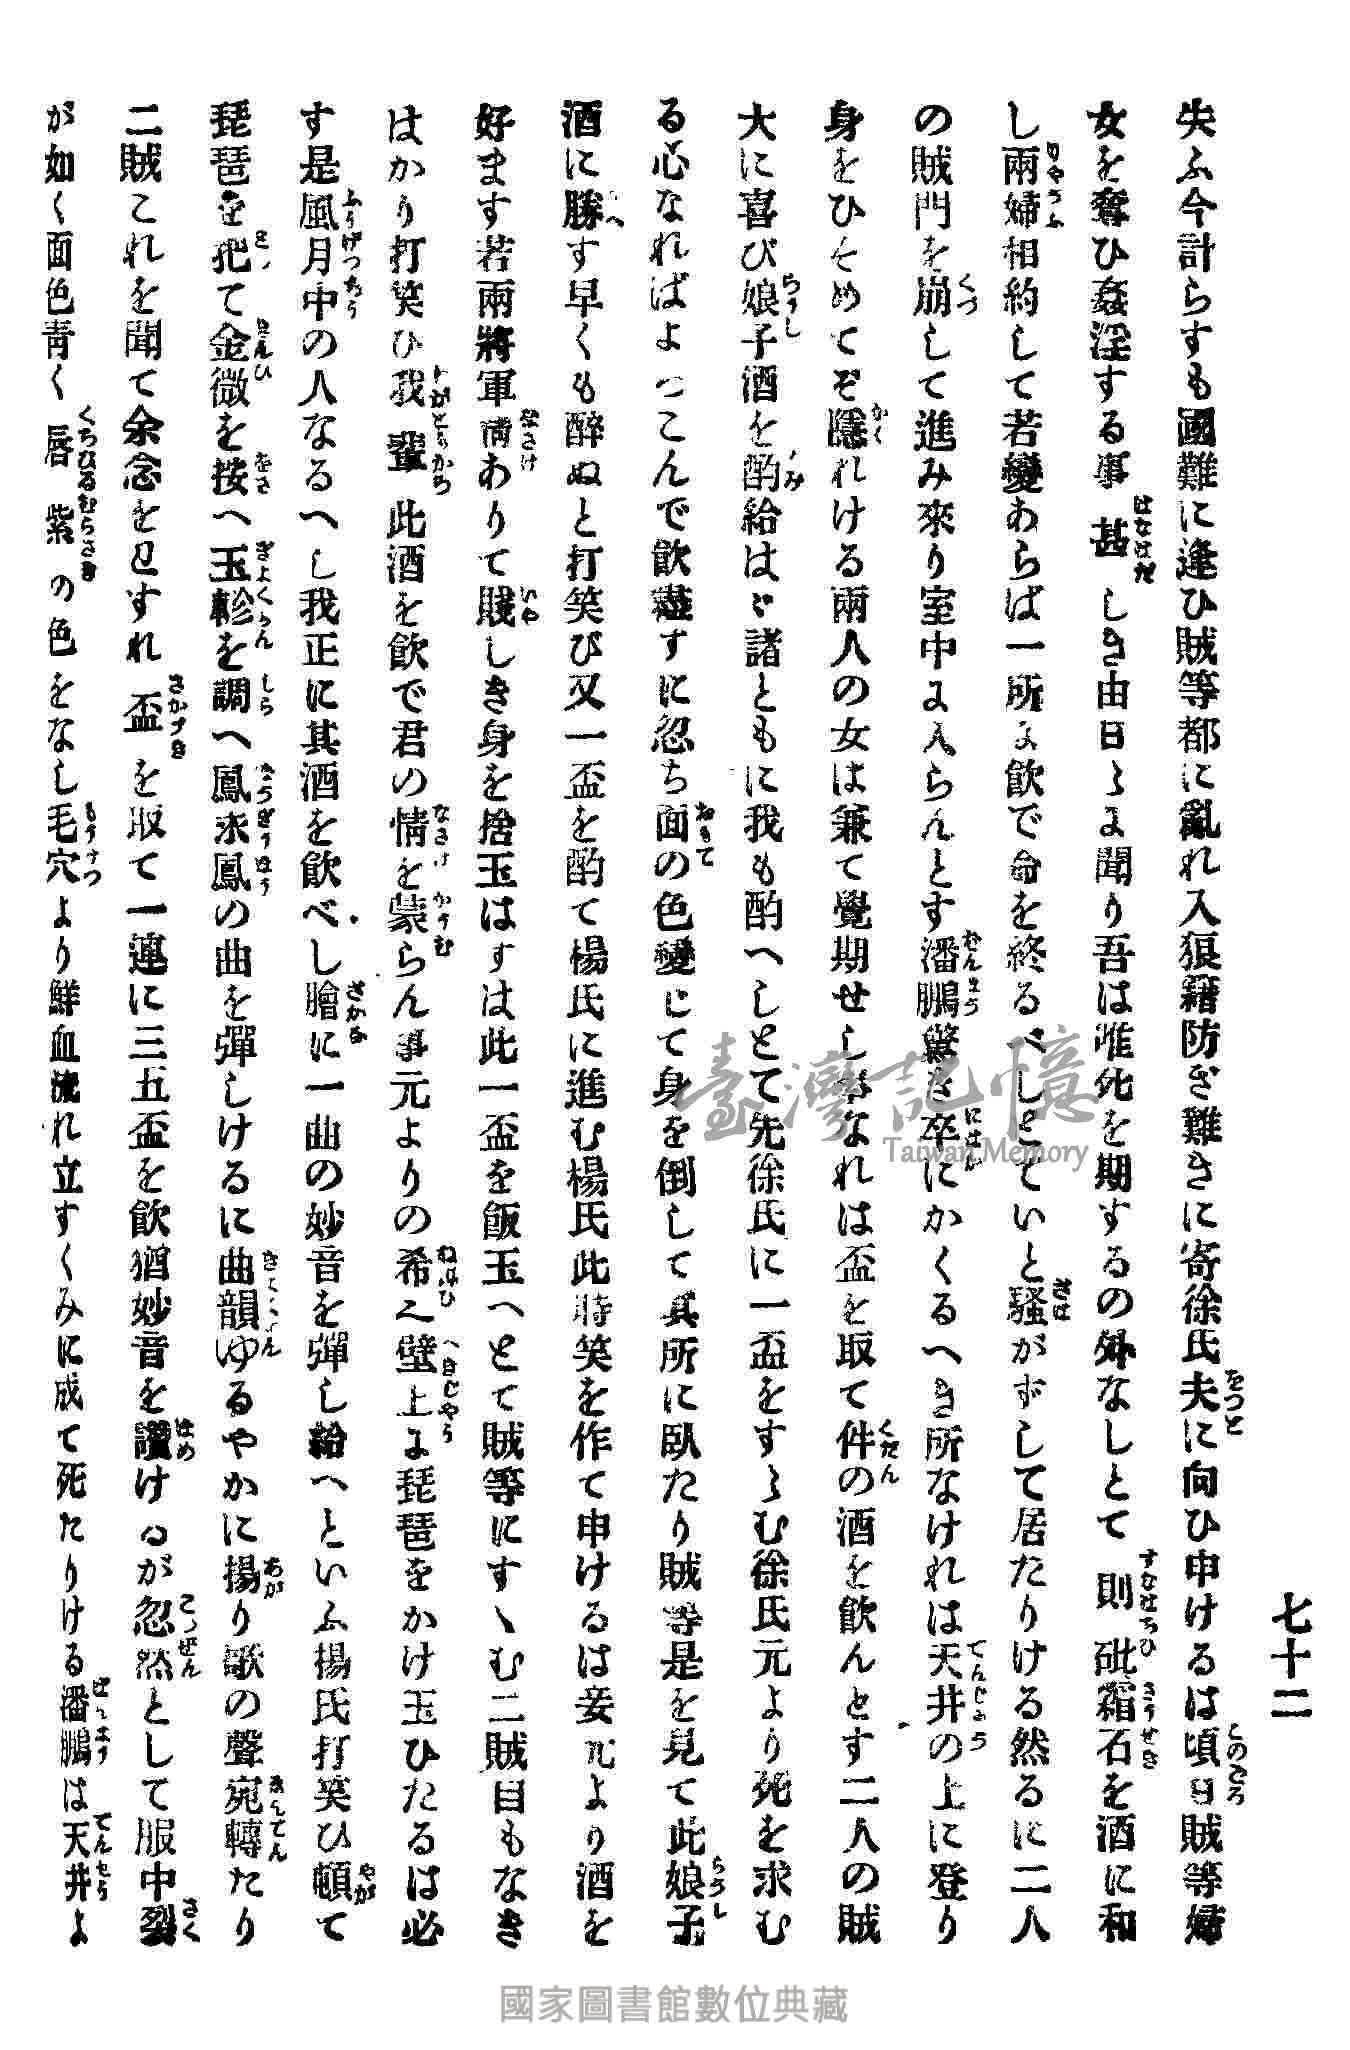 七十二
失ふ今計らすも國難に逢ひ賊等都に亂れ入狼籍防ぎ難きに寄徐氏夫に向ひ申けるは頃日賊等婦
女を奪ひ姦淫する事甚しき由日々ま聞り吾は唯死を期するの外なしとて則砒霜石を酒に和
し兩婦相約して若變あらば一所ま飲で命を終るべしとていと騷がずして居たりける然るに二人
の賊門を崩して進み來り室中ま入らんとす潘鵬驚き卒にかくるへき所なけれは天井の上に登り
身をひそめてぞ隱れける兩人の女は兼て覺期せし事なれは盃を取て件の酒を飲んとす二人の賊
大に喜び娘子酒を酌給はゞ諸ともに我も酌へしとて先徐氏に一盃をすゝむ徐氏元より死を求む
る心なればよつこんで飲盡すに忽ち面の色變じて身を倒して其所に臥たり賊等是を見て此娘子
酒に勝す早くも醉ぬと打笑び又一盃を酌て楊氏に進む楊氏此時笑を作て申けるは妾元より酒を
好ます若兩將軍情ありて賤しき身を捨玉はすは此一盃を飯玉へとて賊等にすゝむ二賊目もなき
はかり打笑ひ我輩此酒を飲で君の情を蒙らん事元よりの希へ壁上ま琵琶をかけ玉ひたるは必
す是風月中の人なるへし我正に其酒を飲べし膾に一曲の妙音を彈し給へといふ揚氏打笑ひ頓て
琵琶を把て金徽を按へ玉軫を調へ鳳求鳳の曲を彈しけるに曲韻ゆるやかに揚り歌の聲宛轉たり
二賊これを聞て余念を忘すれ盃を取て一連に三五盃を飲猶妙音を讃けるが忽然として服中裂
が如く面色靑く唇紫の色をなし毛穴より鮮血流れ立すくみに成て死たりける潘鵬は天井よ
臺灣記憶
Taiwan Memory
國家圖書館數位典藏